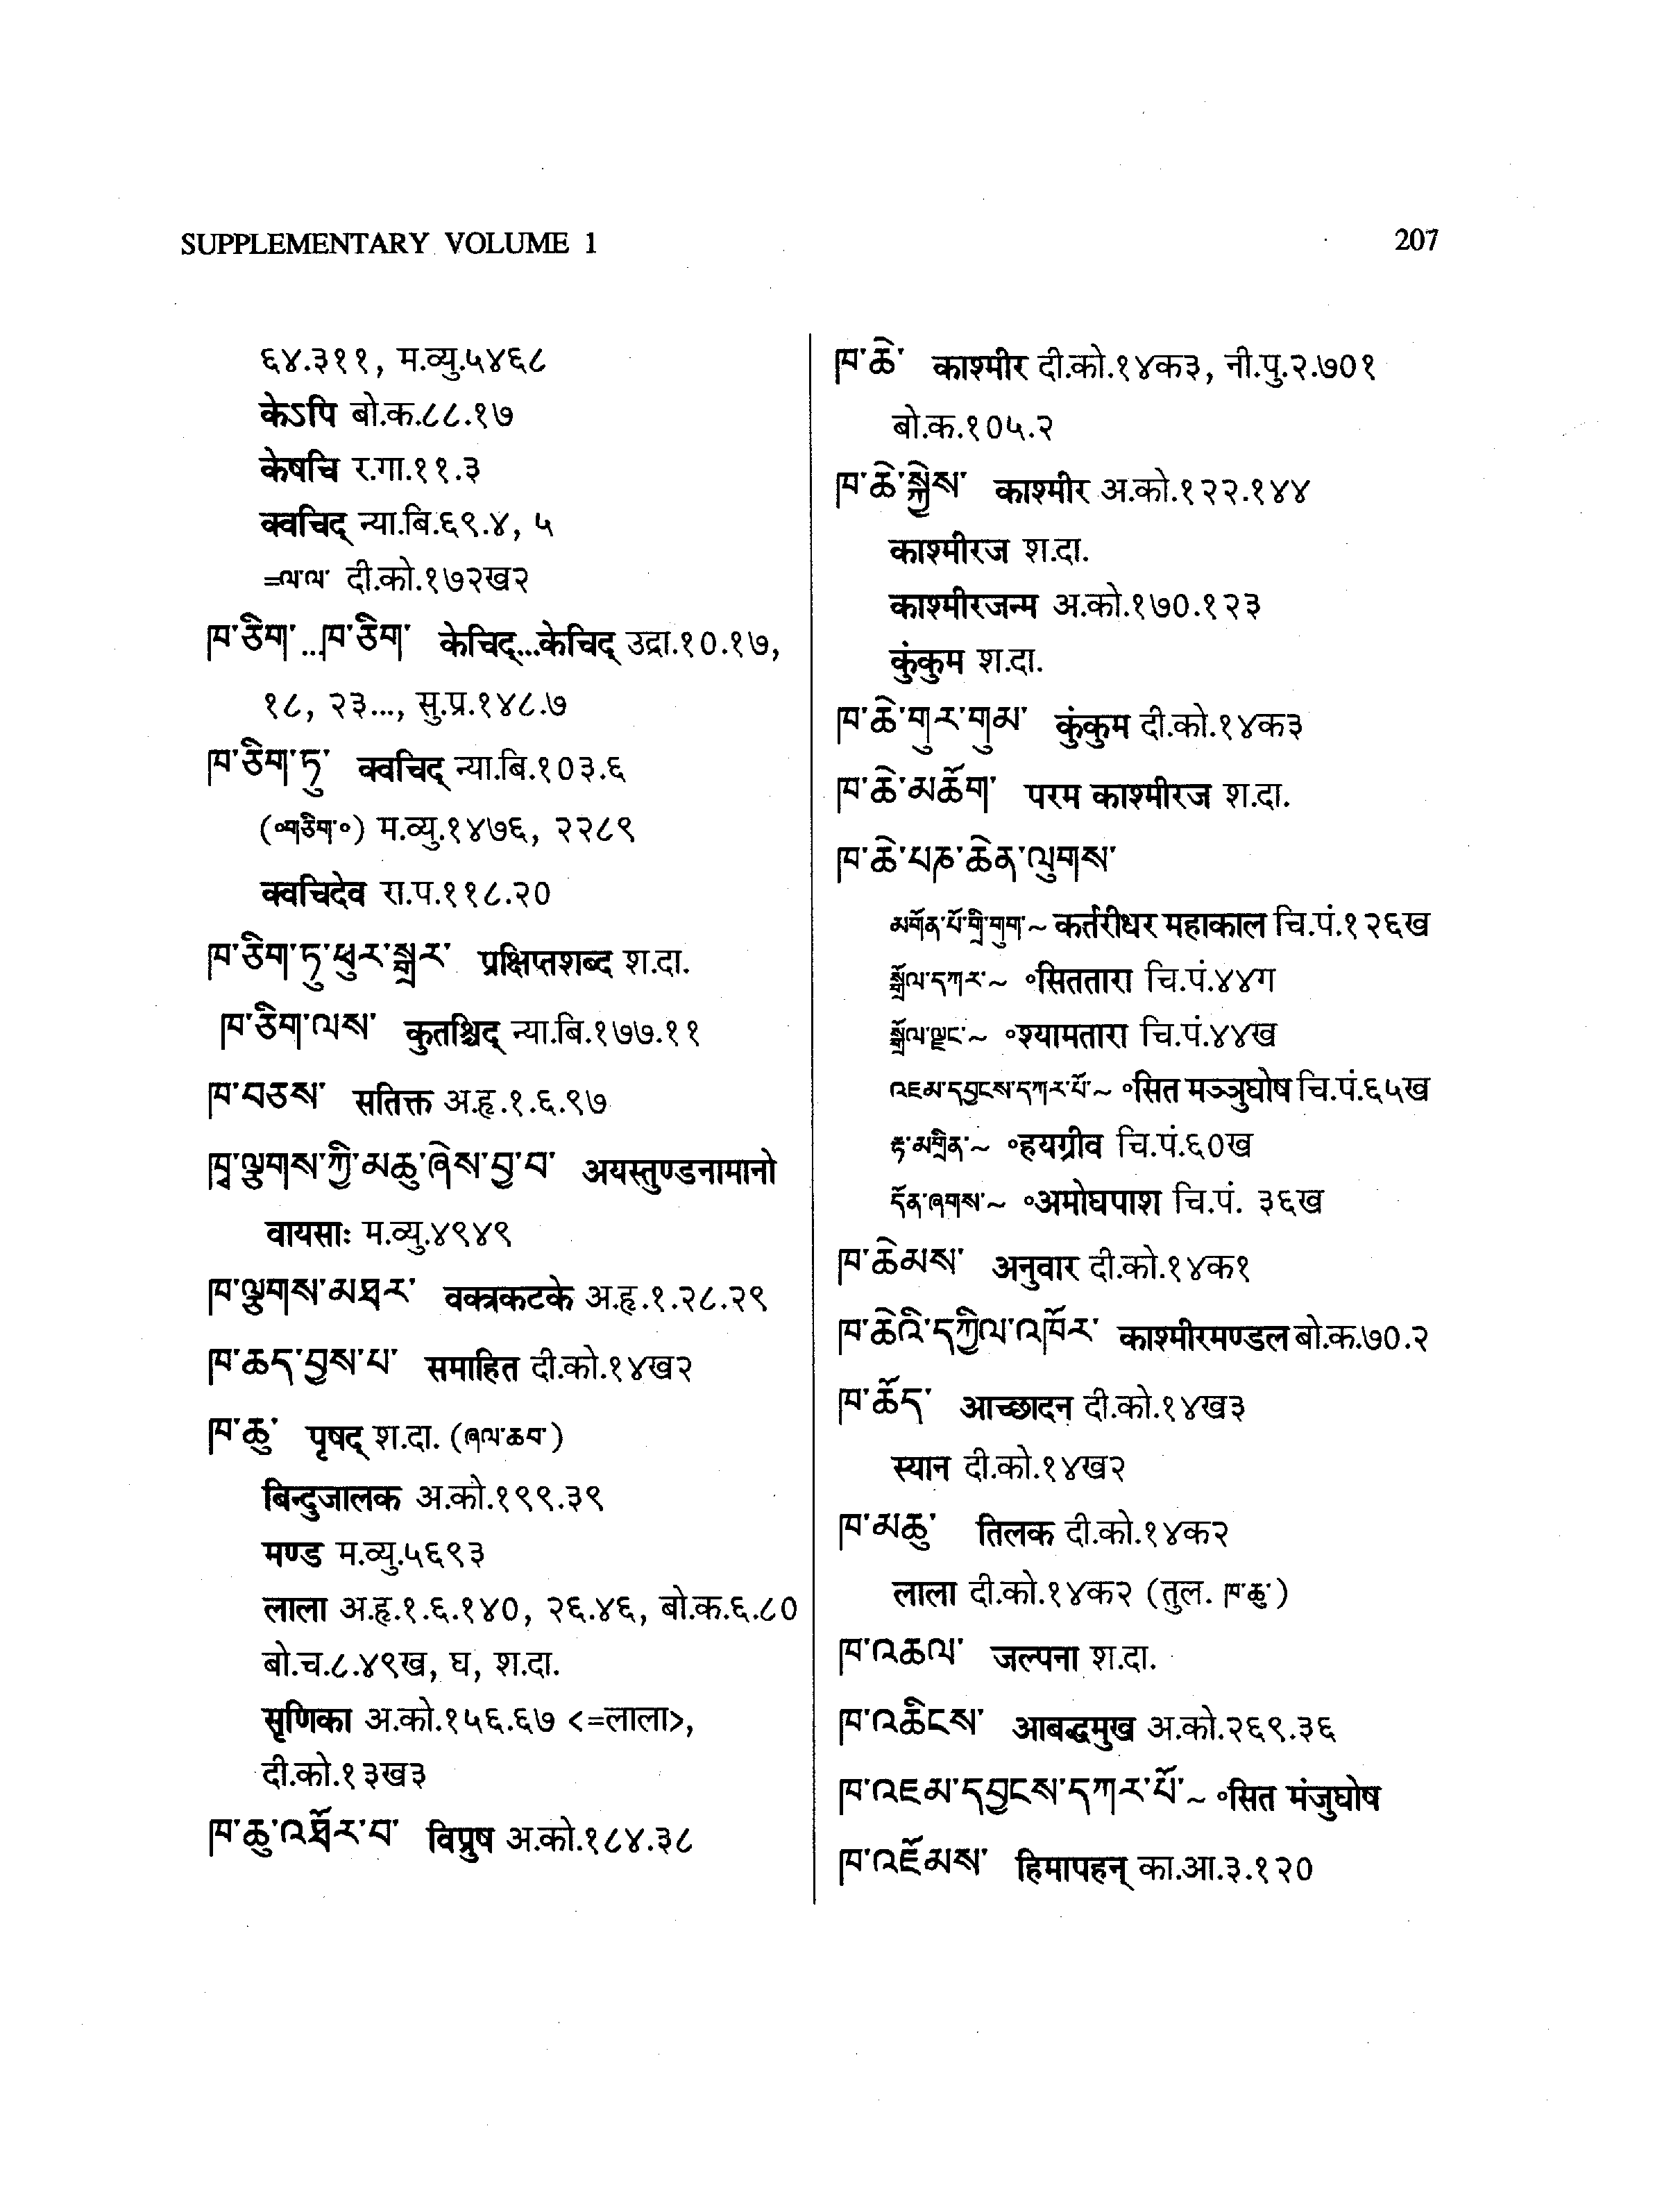 SUPPLEMENTARY VOLUME 1
207
६४.३११, म.व्यु.५४६८
केऽपि बो.क.८८.१७
केषचि र.गा.११.३
क्वचिद् न्या.बि.६९.४, ५
=ལ་ལ་ दी.को.१७२ख२
ཁ་ཅིག་...ཁ་ཅིག་ केचिद्...केचिद् उद्रा.१०.१७,
१८, २३..., सु.प्र.१४८.७
ཁ་ཅིག་ཏུ་ क्वचिद् न्या.बि.१०३.६
(॰གཅིག་॰) म.व्यु.१४७६, २२८९
क्वचिदेव रा.प.११८.२०
ཁ་ཅིག་ཏུ་ཕུར་སྒྲར་ प्रक्षिप्तशब्द श.दा.
ཁ་ཅིག་ལས་ कुतश्चिद् न्या.बि.१७७.११
ཁ་བཅས་ सतिक्त अ.हृ.१.६.९७
ཁྭ་ལྕགས་ཀྱི་མཆུ་ཞེས་བྱ་བ་ अयस्तुण्डनामानो
वायसाः म.व्यु.४९४९
ཁ་ལྕགས་མཐར་ वक्त्रकटके अ.हृ.१.२८.२९
ཁ་ཆད་བྱས་པ་ समाहित दी.को.१४ख२
ཁ་ཆུ་ पृषद् श.दा. (ཞལ་ཆབ་)
बिन्दुजालक अ.को.१९९.३९
मण्ड म.व्यु.५६९३
लाला अ.हृ.१.६.१४०, २६.४६, बो.क.६.८०
बो.च.८.४९ख, घ, श.दा.
सृणिका अ.को.१५६.६७ <=लाला>,
दी.को.१३ख३
ཁ་ཆུ་འཐོར་བ་ विप्रुष अ.को.१८४.३८
ཁ་ཆེ་ काश्मीर दी.को.१४क३, नी.पु.२.७०१
बो.क.१०५.२
ཁ་ཆེ་སྐྱེས་ काश्मीर अ.को.१२२.१४४
काश्मीरज श.दा.
काश्मीरजन्म अ.को.१७०.१२३
कुंकुम श.दा.
ཁ་ཆེ་གུར་གུམ་ कुंकुम दी.को.१४क३
ཁ་ཆེ་མཆོག་ परम काश्मीरज श.दा.
ཁ་ཆེ་པཎ་ཆེན་ལུགས་
མགོན་པོ་གྲི་གུག་~ कर्तरीधर महाकाल चि.पं.१२६ख
སྒྲོལ་དཀར་~ ॰सिततारा चि.पं.४४ग
སྒྲོལ་ལྗང་~ ॰श्यामतारा चि.पं.४४ख
འཇམ་དབྱངས་དཀར་པོ་~ ॰सित मञ्जुघोष चि.पं.६५ख
རྟ་མགྲིན་~ ॰हयग्रीव चि.पं.६०ख
དོན་ཞགས་~ ॰अमोघपाश चि.पं. ३६ख
ཁ་ཆེམས་ अनुवार दी.को.१४क१
ཁ་ཆེའི་དཀྱིལ་འཁོར་ काश्मीरमण्डल बो.क.७०.२
ཁ་ཆོད་ आच्छादन दी.को.१४ख३
स्यान दी.को.१४ख२
ཁ་མཆུ་ तिलक दी.को.१४क२
लाला दी.को.१४क२ (तुल. ཁ་ཆུ་)
ཁ་འཆལ་ जल्पना श.दा.
ཁ་འཆིངས་ आबद्धमुख अ.को.२६९.३६
ཁ་འཇམ་དབྱངས་དཀར་པོ་~ ॰सित मंजुघोष
ཁ་འཇོམས་ हिमापहन् का.आ.३.१२०